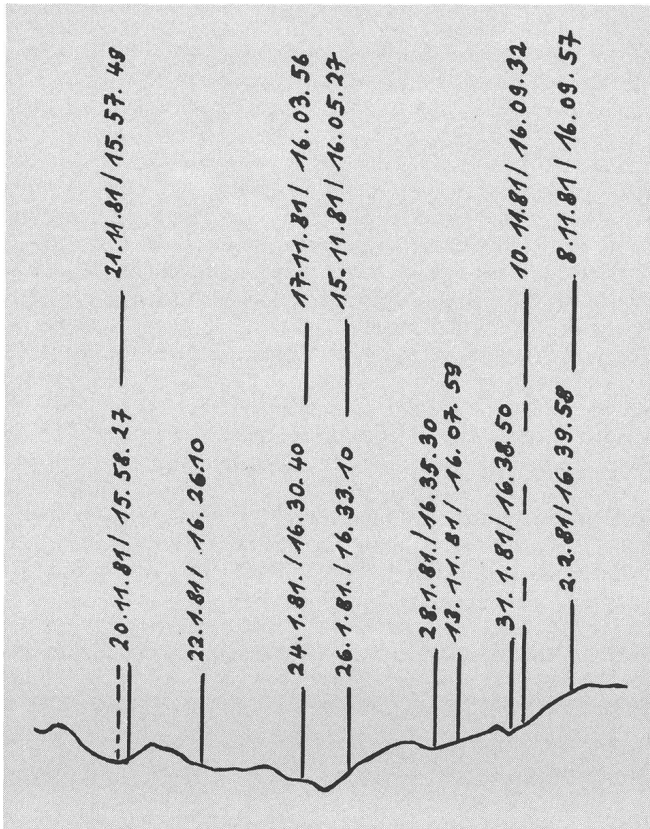 20.11.81 / 15.58.27
21.11.81 / 15.57.48
22.1.81 / 16.26.10
24.1.81. / 16.30.40
17.11.81 / 16.03.56
26.1.81. / 16.33.10
15.11.81 / 16.05.27
28.1.81. / 16.35.30
13.11.81 / 16.07.59
31.1.81 / 16.38.50
10.11.81 / 16.09.32
2.2.81 / 16.39.58
8.11.81 / 16.09.57